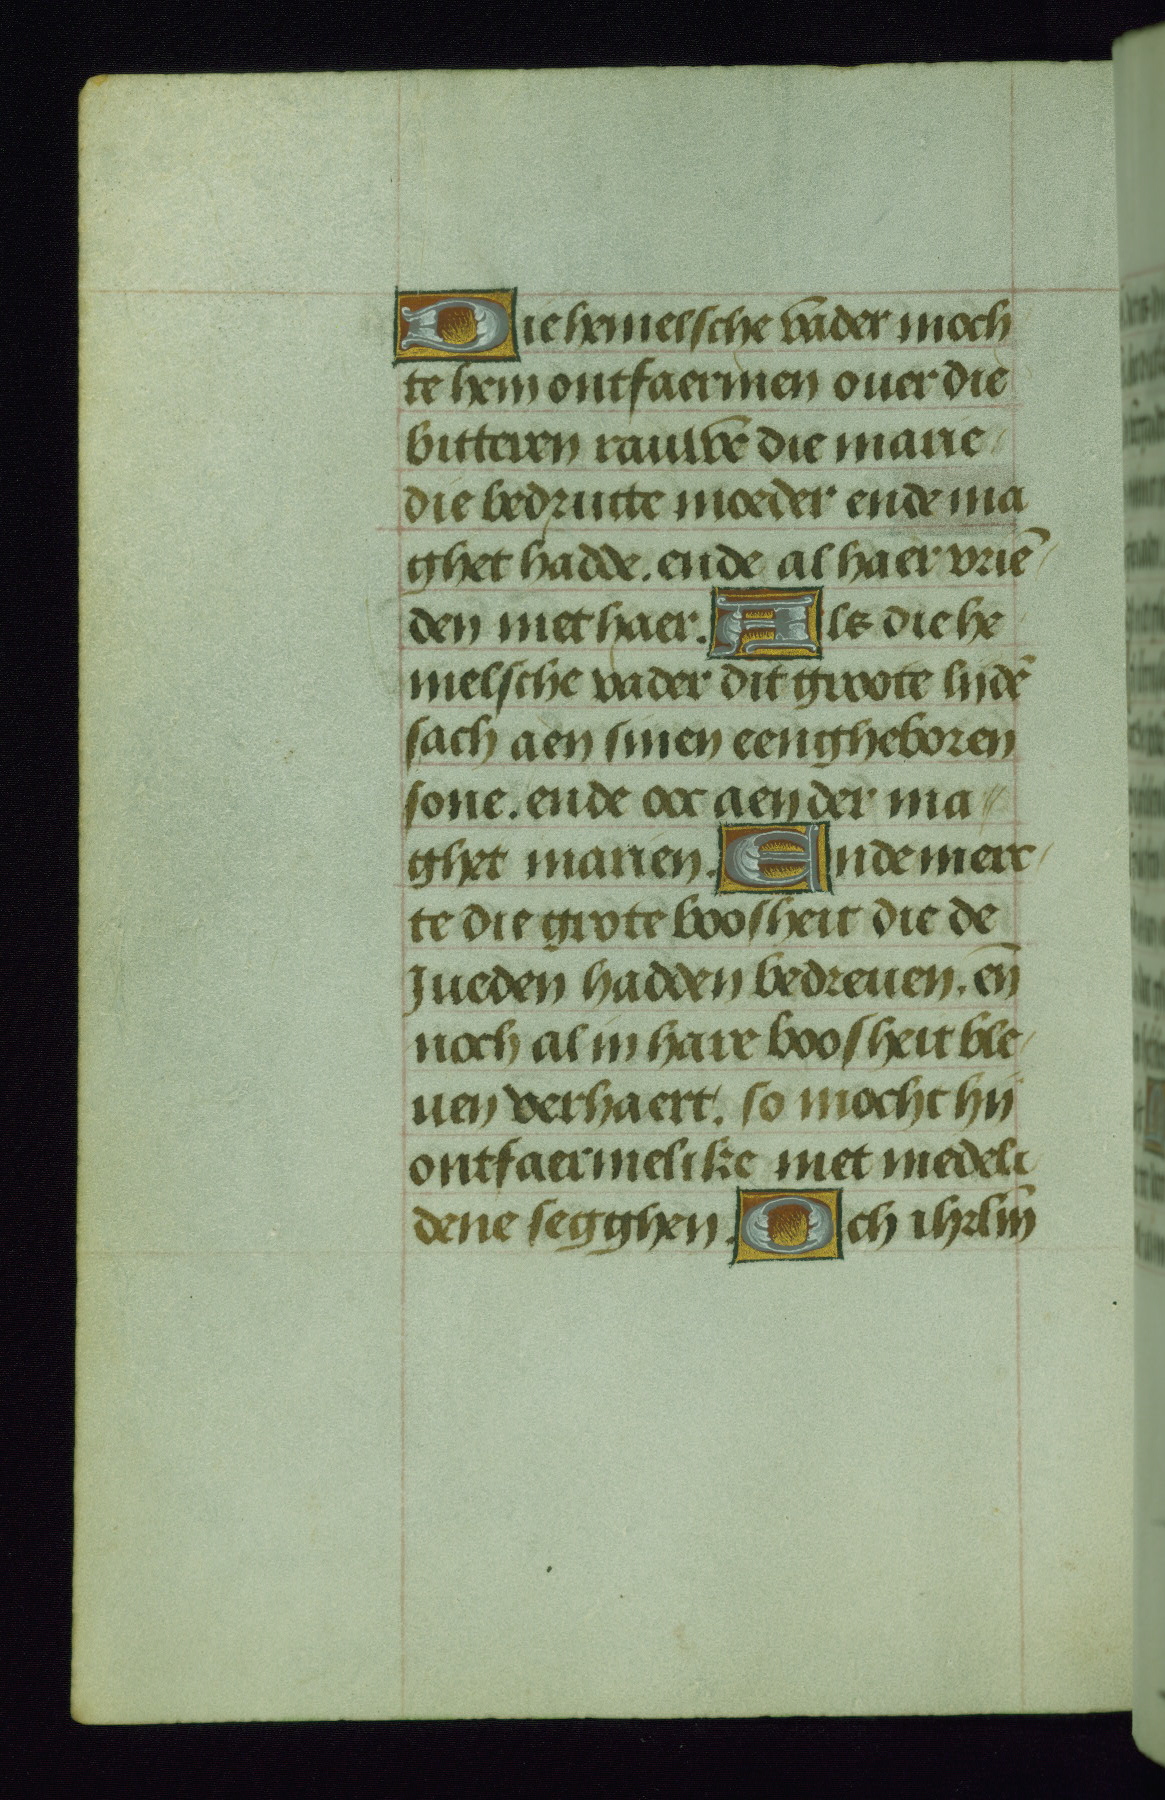 Die hemelsche vader moch
te hem ontfaermen ouer die
bitteren rauwē die marie
die bedructe moeder ende ma
ghet hadde. ende al haer vriē
den met haer. Als die he
melsche vader dit groote lijdē
sach aen sinen eengheboren
sone. ende ooc aen der ma
ghet marien. Ende merc
te die grote boosheit die de
Jueden hadden bedreuen. eñ
noch al in hare boosheit ble
uen verhaert. so mocht hij
ontfaermelike met medeli
dene segghen. Och ihrlm̄